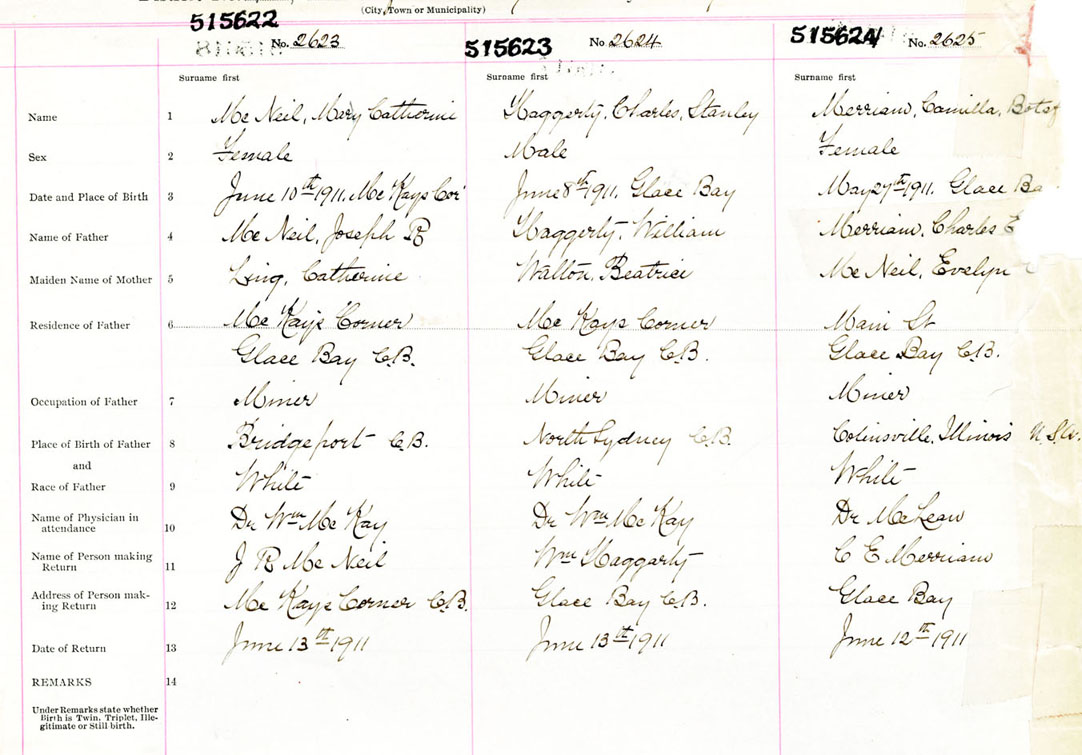 (City, Town or Municipality)
515622
No. 2623
515623
No 2624
515624
No. 2625
Surname first
Surname first
Surname first
Name 1 Mc Neil, Mary Catherine Haggerty, Charles, Stanley Merriam, Camilla, Botsf
Sex 2 Female Male Female
Date and Place of Birth 3 June 10th 1911, Mc Kays Cor June 8th 1911, Glace Bay May 27th 1911, Glace Ba
Name of Father 4 Mc Neil, Joseph R Haggerty, William Merriam, Charles E
Maiden Name of Mother 5 Ling, Catherine Walton, Beatrice Mc Neil, Evelyn
Residence of Father 6 Mc Kays Corner Mc Kays Corner Main St
Glace Bay C.B. Glace Bay C.B. Glace Bay C.B.
Occupation of Father 7 Miner Miner Miner
Place of Birth of Father 8 Bridgeport C.B. North Sydney C.B. Colinsville, Illinois U.S.A.
and
Race of Father 9 White White White
Name of Physician in
attendance 10 Dr Wm Mc Kay Dr Wm Mc Kay Dr McLean
Name of Person making
Return 11 J R Mc Neil Wm Haggarty C E Merriam
Address of Person mak-
ing Return 12 Mc Kays Corner C.B. Glace Bay C.B. Glace Bay
Date of Return 13 June 13th 1911 June 13th 1911 June 12th 1911
REMARKS 14
Under Remarks state whether
Birth is Twin, Triplet, Ille-
gitimate or Still birth.